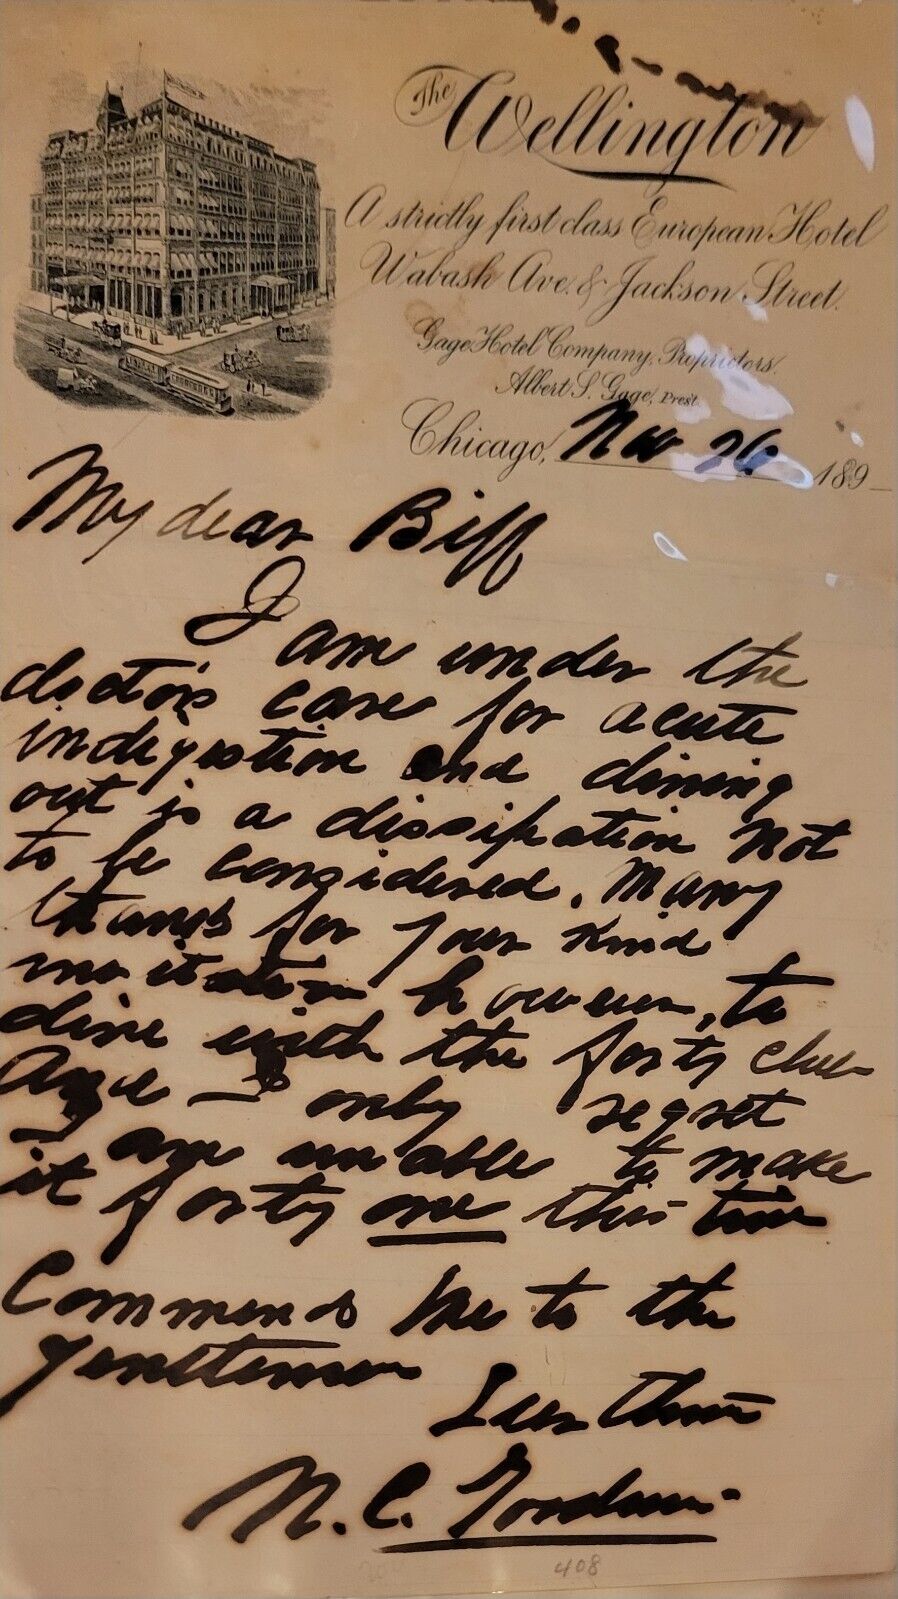 The Wellington
A strictly first class European Hotel
Wabash Ave. & Jackson Street.
Gage Hotel Company, Proprietors.
Albert S. Gage, Prest.
Chicago, Nov 26 189_
My dear Biff
I am under the
doctor's care for acute
indigestion and dining
out is a dissipation not
to be considered. Many
thanks for your kind
invitation however, to
dine with the forty club
and I only regret
I am unable to make
it forty one this time
Commend me to the
gentlemen
Ever thine
N. C. Goodwin
408